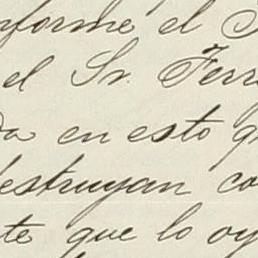 nforme el
el Sr. Ferr
da en esto q
destruyan co
te que lo oy